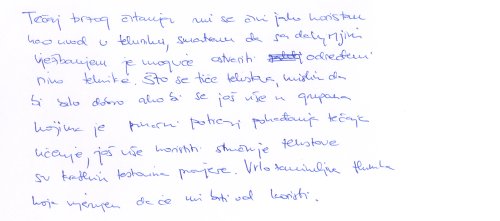 Tečaj brzog čitanja mi se čini jako koristan
kao uvod u tehniku, smatram da sa daljnjim
vježbanjem je moguće ostvariti određeni
nivo tehnike. Što se tiče tekstova, mislim da
bi bilo dobro ako bi se još više u grupama
kojima je primarni pohađanje tečaja
učenje, još više koristiti stručnije tekstove
su testovima provjere. Vrlo zanimljiva tehnika
koja vjerujem da će mi biti od koristi.